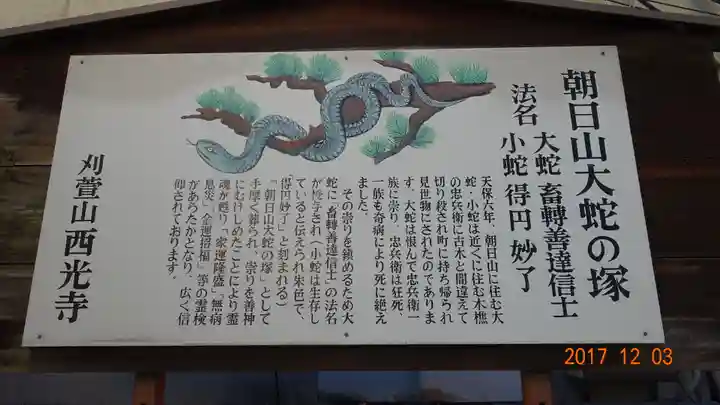 朝日山大蛇の塚
法名 大蛇 畜轉善達信士
小蛇 得円妙了
天保六年、朝日山に住む大
蛇・小蛇は近くに住む木樵
の忠兵衛に古木と間違えて
切り殺され町に持ち帰られ
見世物にされたのでありま
す。大蛇は恨んで忠兵衛一
族に祟り、忠兵衛は狂死、
一族も奇病により死に絶え
ました。
その祟りを鎮めるため大
蛇に「畜轉善達信士」の法名
が授与され（小蛇は生存し
ていると伝えられ朱色で、
「得円妙了」と刻まれる）
「朝日山大蛇の塚」として
手厚く葬られ、祟りを善神
にむけしめたことにより霊
魂が甦り「家運隆盛」「無病
息災」「金運招福」等の霊検
があらたかとなり、広く信
仰されております。
刈萱山西光寺
2017 12 03